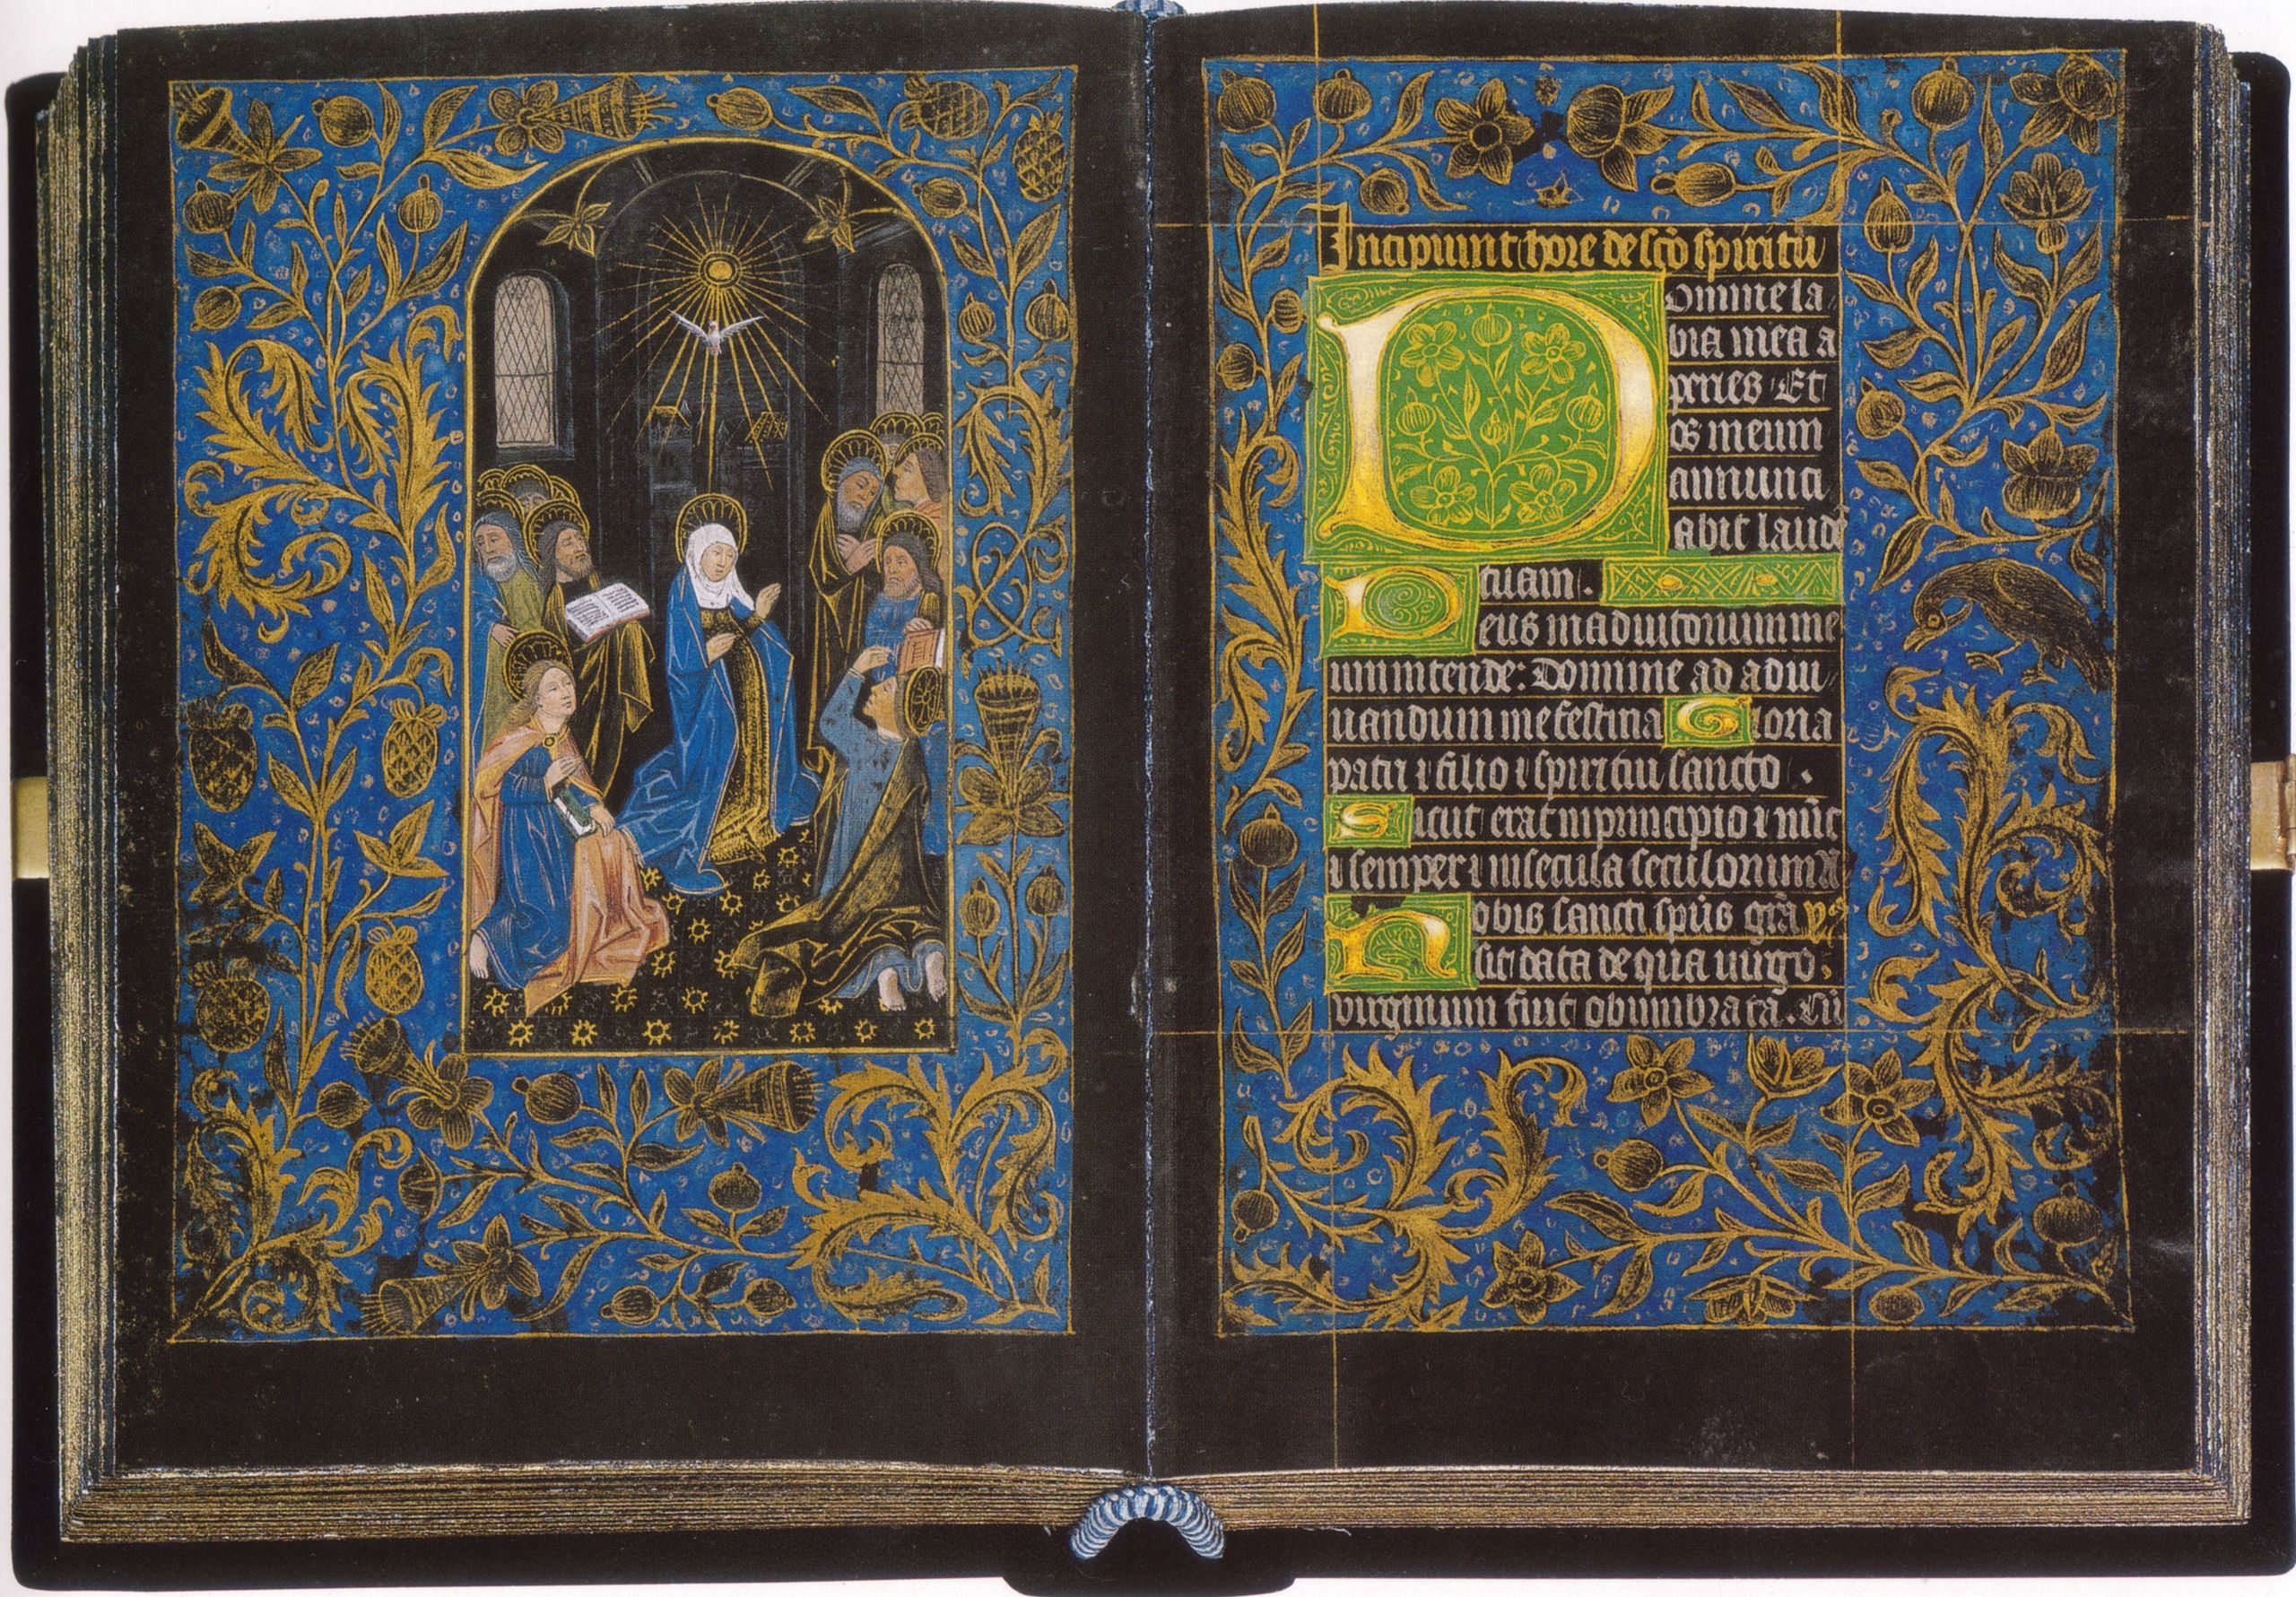 Incipiunt hore de sco spiritu
Domine la
bia mea a
peries Et
os meum
annunci
abit laudē
tuam .
Deus in adiutorium me
um intende: Domine ad adiu
uandum me festina Gloria
patri ⁊ filio ⁊ spiritui sancto .
Sicut erat in principio ⁊ nūc
⁊ semper ⁊ in secula seculorum A
Nobis sancti spūs grā
sit data de qua uirgo
virginum fuit obumbrata. Cū